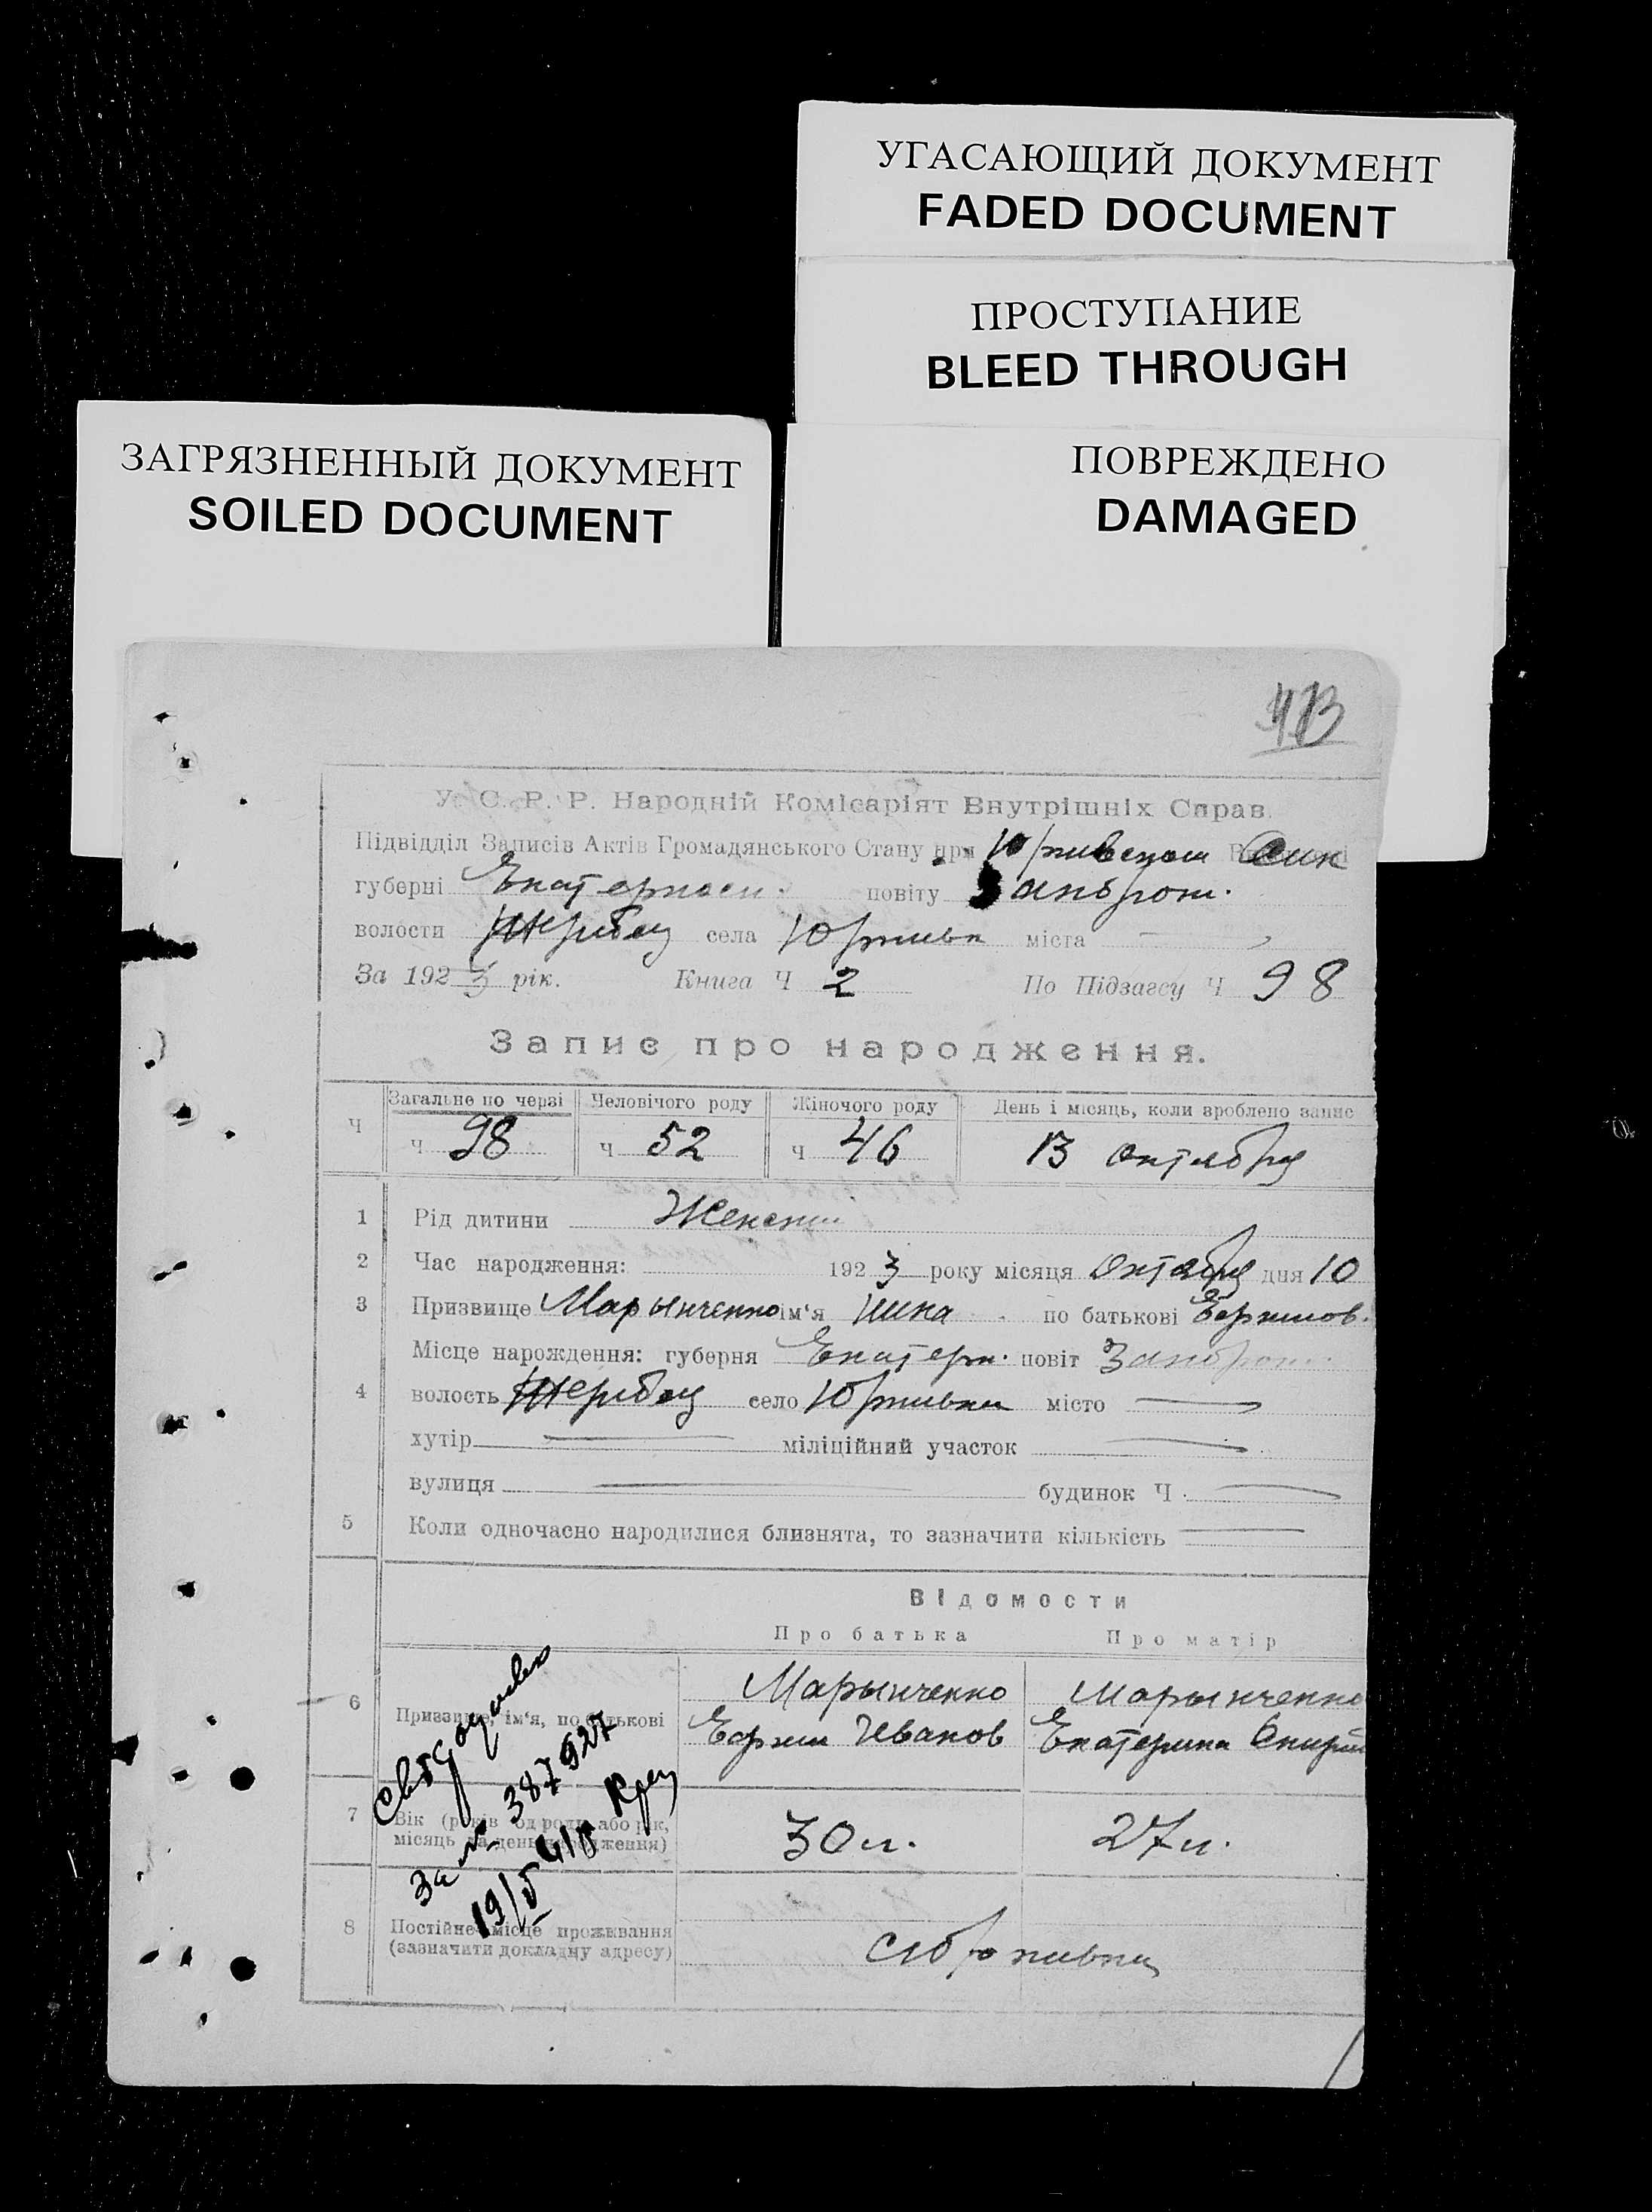 УГАСАЮЩИЙ ДОКУМЕНТ
FADED DOCUMENT
ПРОСТУПАНИЕ
BLEED THROUGH
ЗАГРЯЗНЕННЫЙ ДОКУМЕНТ
SOILED DOCUMENT
ПОВРЕЖДЕНО
DAMAGED
У. С. Р. Р. Народній Комісаріят Внутрішніх Справ.
Підвідділ Записів Актів Громадянського Стану при
губерні Екатеринос. повіту Запорож.
волости Жеребец села Юрковка міста —
За 1923 рік. Книга Ч 2 По Підзагсу Ч 98
Запис про народження.
Ч Загальне по черзі Человічого роду Жіночого роду День і місяць, коли зроблено запис
ч 98 ч 52 ч 46 13 октября
1 Рід дитини Женский
2 Час народження: 1923 року місяця Октября дня 10
3 Призвище Марынченко ім'я Нина по батькові Ефимов.
Місце нарождення: губерня Екатерн. повіт Запорож.
4 волость Жеребец село Юрковка місто —
хутір — міліційний участок —
вулиця — будинок Ч. —
5 Коли одночасно народилися близнята, то зазначити кількість —
Відомости
Про батька Про матір
6 Призвище, ім'я, по батькові Марынченко Марынченко
Ефим Иванов Екатерина Спирид
7 Вік (років од роду або рік, місяць та день народження) 30 л. 27 л.
8 Постійне місце проживання
(зазначити докладну адресу)
За № 387927
19/5